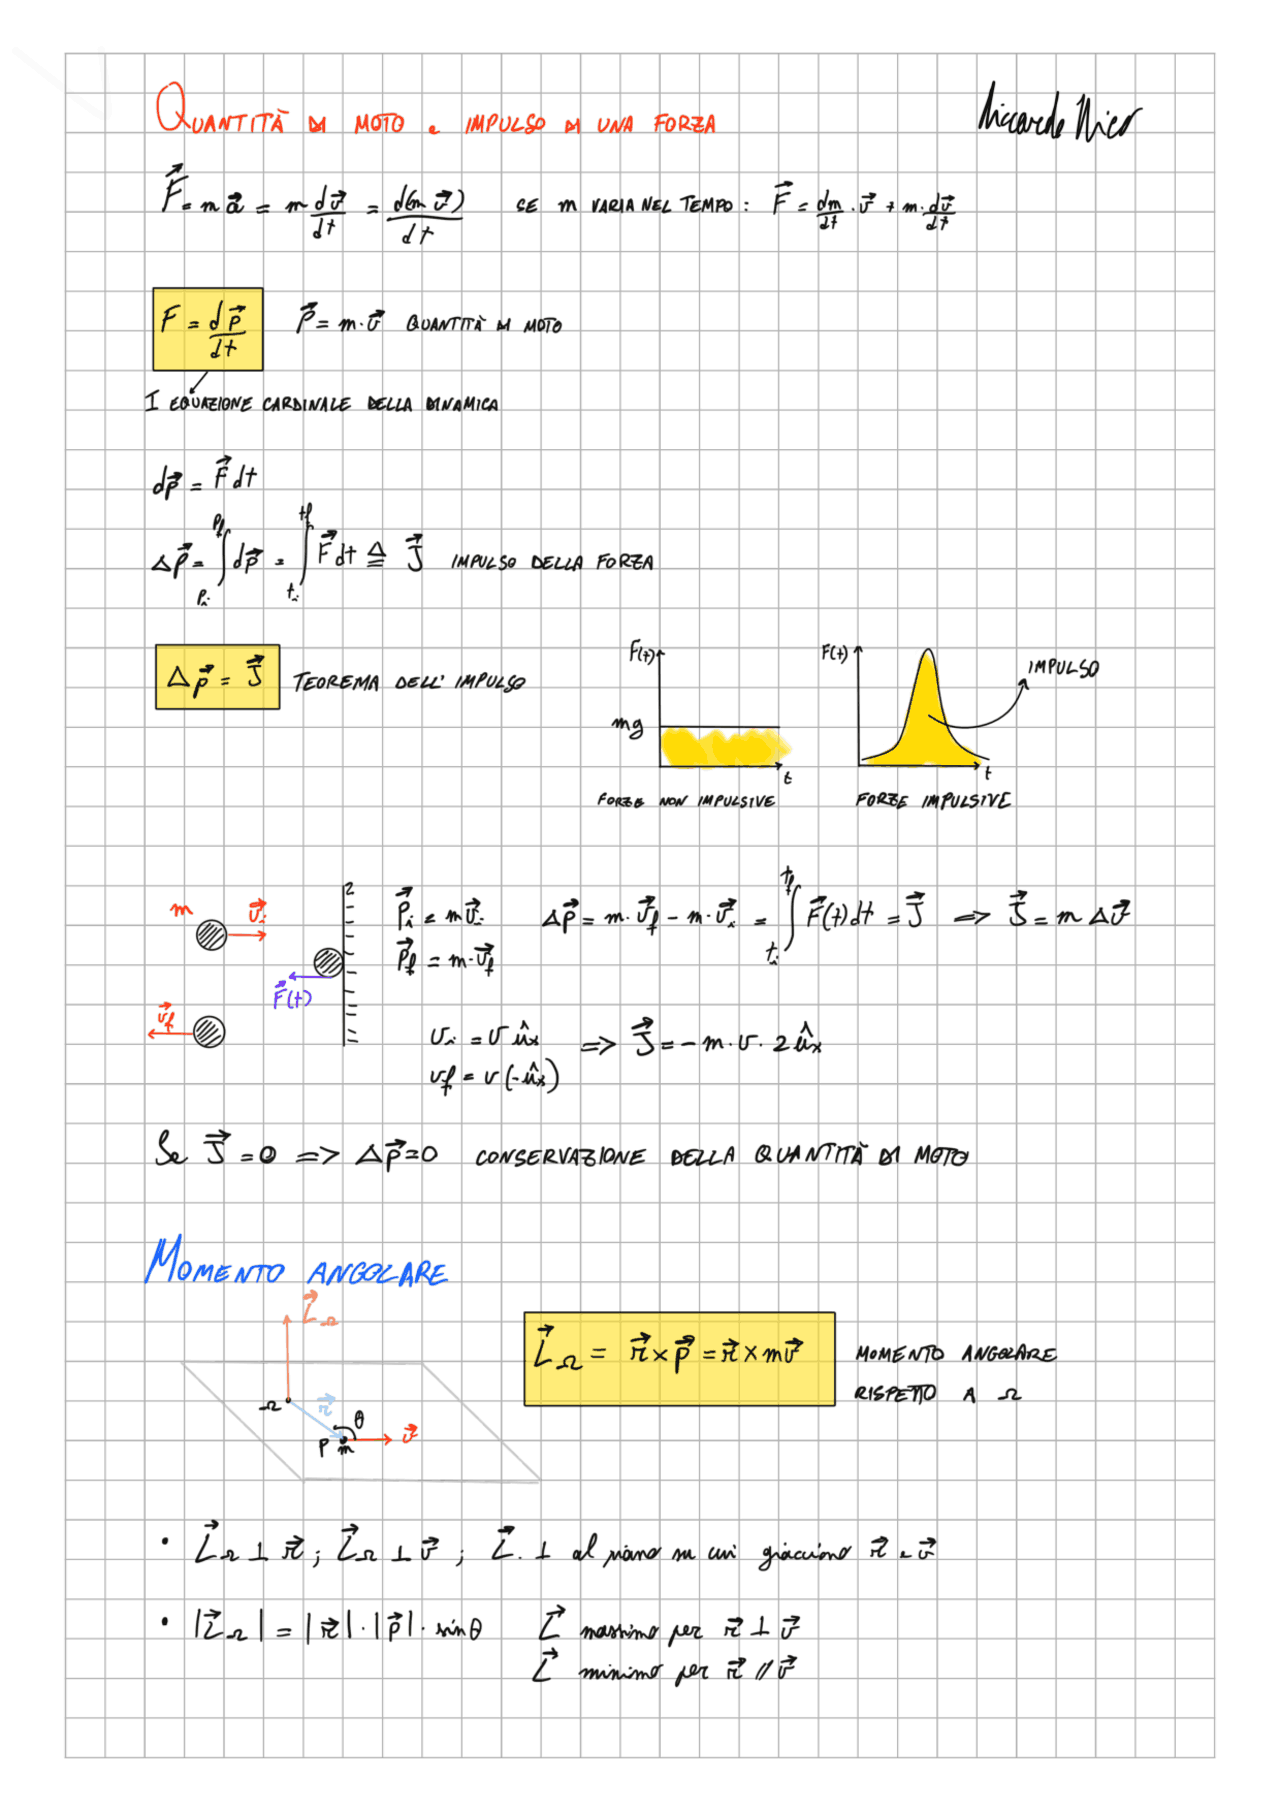 QUANTITÀ DI MOTO e IMPULSO DI UNA FORZA
Riccardo Nicò
F⃗ = m a⃗ = m dv⃗/dt = d(m v⃗)/dt SE m VARIA NEL TEMPO: F⃗ = dm/dt · v⃗ + m · dv⃗/dt
F = dp⃗/dt P⃗ = m · v⃗ QUANTITÀ DI MOTO
I EQUAZIONE CARDINALE DELLA DINAMICA
dp⃗ = F⃗ dt
Δp⃗ = ∫_{Pi}^{Pf} dp⃗ = ∫_{ti}^{tf} F⃗ dt ≜ J⃗ IMPULSO DELLA FORZA
Δp⃗ = J⃗ TEOREMA DELL' IMPULSO
F(t) mg t
FORZE NON IMPULSIVE
F(t) IMPULSO t
FORZE IMPULSIVE
m v⃗i
F⃗(t)
v⃗f
P⃗i = m v⃗i Δp⃗ = m · v⃗f - m · v⃗i = ∫_{ti}^{tf} F⃗(t) dt = J⃗ => J⃗ = m Δv⃗
P⃗f = m · v⃗f
vi = v ûx => J⃗ = - m · v · 2 ûx
vf = v (-ûx)
Se J⃗ = 0 => Δp⃗ = 0 CONSERVAZIONE DELLA QUANTITÀ DI MOTO
MOMENTO ANGOLARE
L⃗Ω
Ω r⃗ θ
P m v⃗
L⃗Ω = r⃗ × p⃗ = r⃗ × m v⃗ MOMENTO ANGOLARE
RISPETTO A Ω
• L⃗Ω ⊥ r⃗ ; L⃗Ω ⊥ v⃗ ; L⃗ . ⊥ al piano su cui giacciono r⃗ e v⃗
• |L⃗Ω| = |r⃗| · |p⃗| · sinθ L⃗ massimo per r⃗ ⊥ v⃗
L⃗ minimo per r⃗ // v⃗